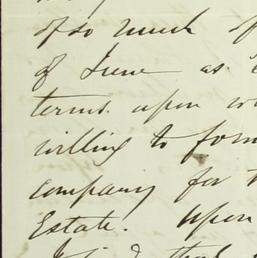 of so much of
of June as
terms upon
willing to form
company for
Estate. Upon